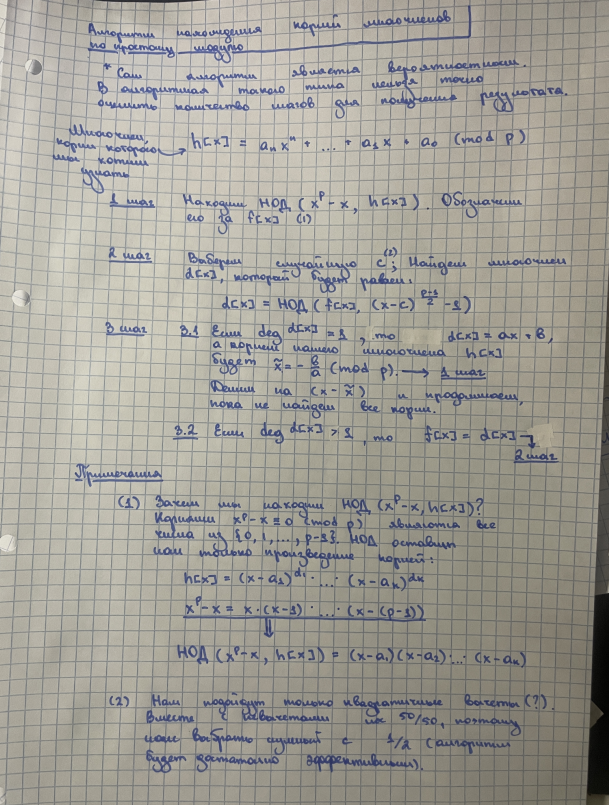 Алгоритм нахождения корней многочленов
по простому модулю
* Сам алгоритм является вероятностным.
В алгоритмах такого типа нельзя точно
оценить количество шагов для получения результата.
Многочлен,
корни которого
мы хотим
узнать
h[x] = aₙxⁿ + ... + a₁x + a₀ (mod p)
1 шаг Находим НОД (xᵖ - x, h[x]). Обозначим
его за f[x] (1)
2 шаг Выберем случайную c⁽²⁾; Найдем многочлен
d[x], который будет равен:
d[x] = НОД (f[x], (x-c)^((p-1)/2) - 1)
3 шаг 3.1 Если deg d[x] = 1, то d[x] = ax + b,
а корнем нашего многочлена h[x]
будет x̃ = -b/a (mod p). → 1 шаг
Делим на (x - x̃) и продолжаем,
пока не найдем все корни.
3.2 Если deg d[x] > 1, то f[x] = d[x] →
2 шаг
Примечания
(1) Зачем мы находим НОД (xᵖ - x, h[x])?
Корнями xᵖ - x ≡ 0 (mod p) являются все
числа из {0, 1, ..., p-1}. НОД оставит
нам только произведение корней:
h[x] = (x - a₁)^d₁ · ... · (x - aₖ)^dₖ
xᵖ - x = x · (x - 1) · ... · (x - (p-1))
⇓
НОД (xᵖ - x, h[x]) = (x - a₁)(x - a₂) · ... · (x - aₖ)
(2) Нам подойдут только квадратичные вычеты (?).
Вместе с невычетами их 50/50, поэтому
шанс выбрать нужный c 1/2 (алгоритм
будет достаточно эффективным).